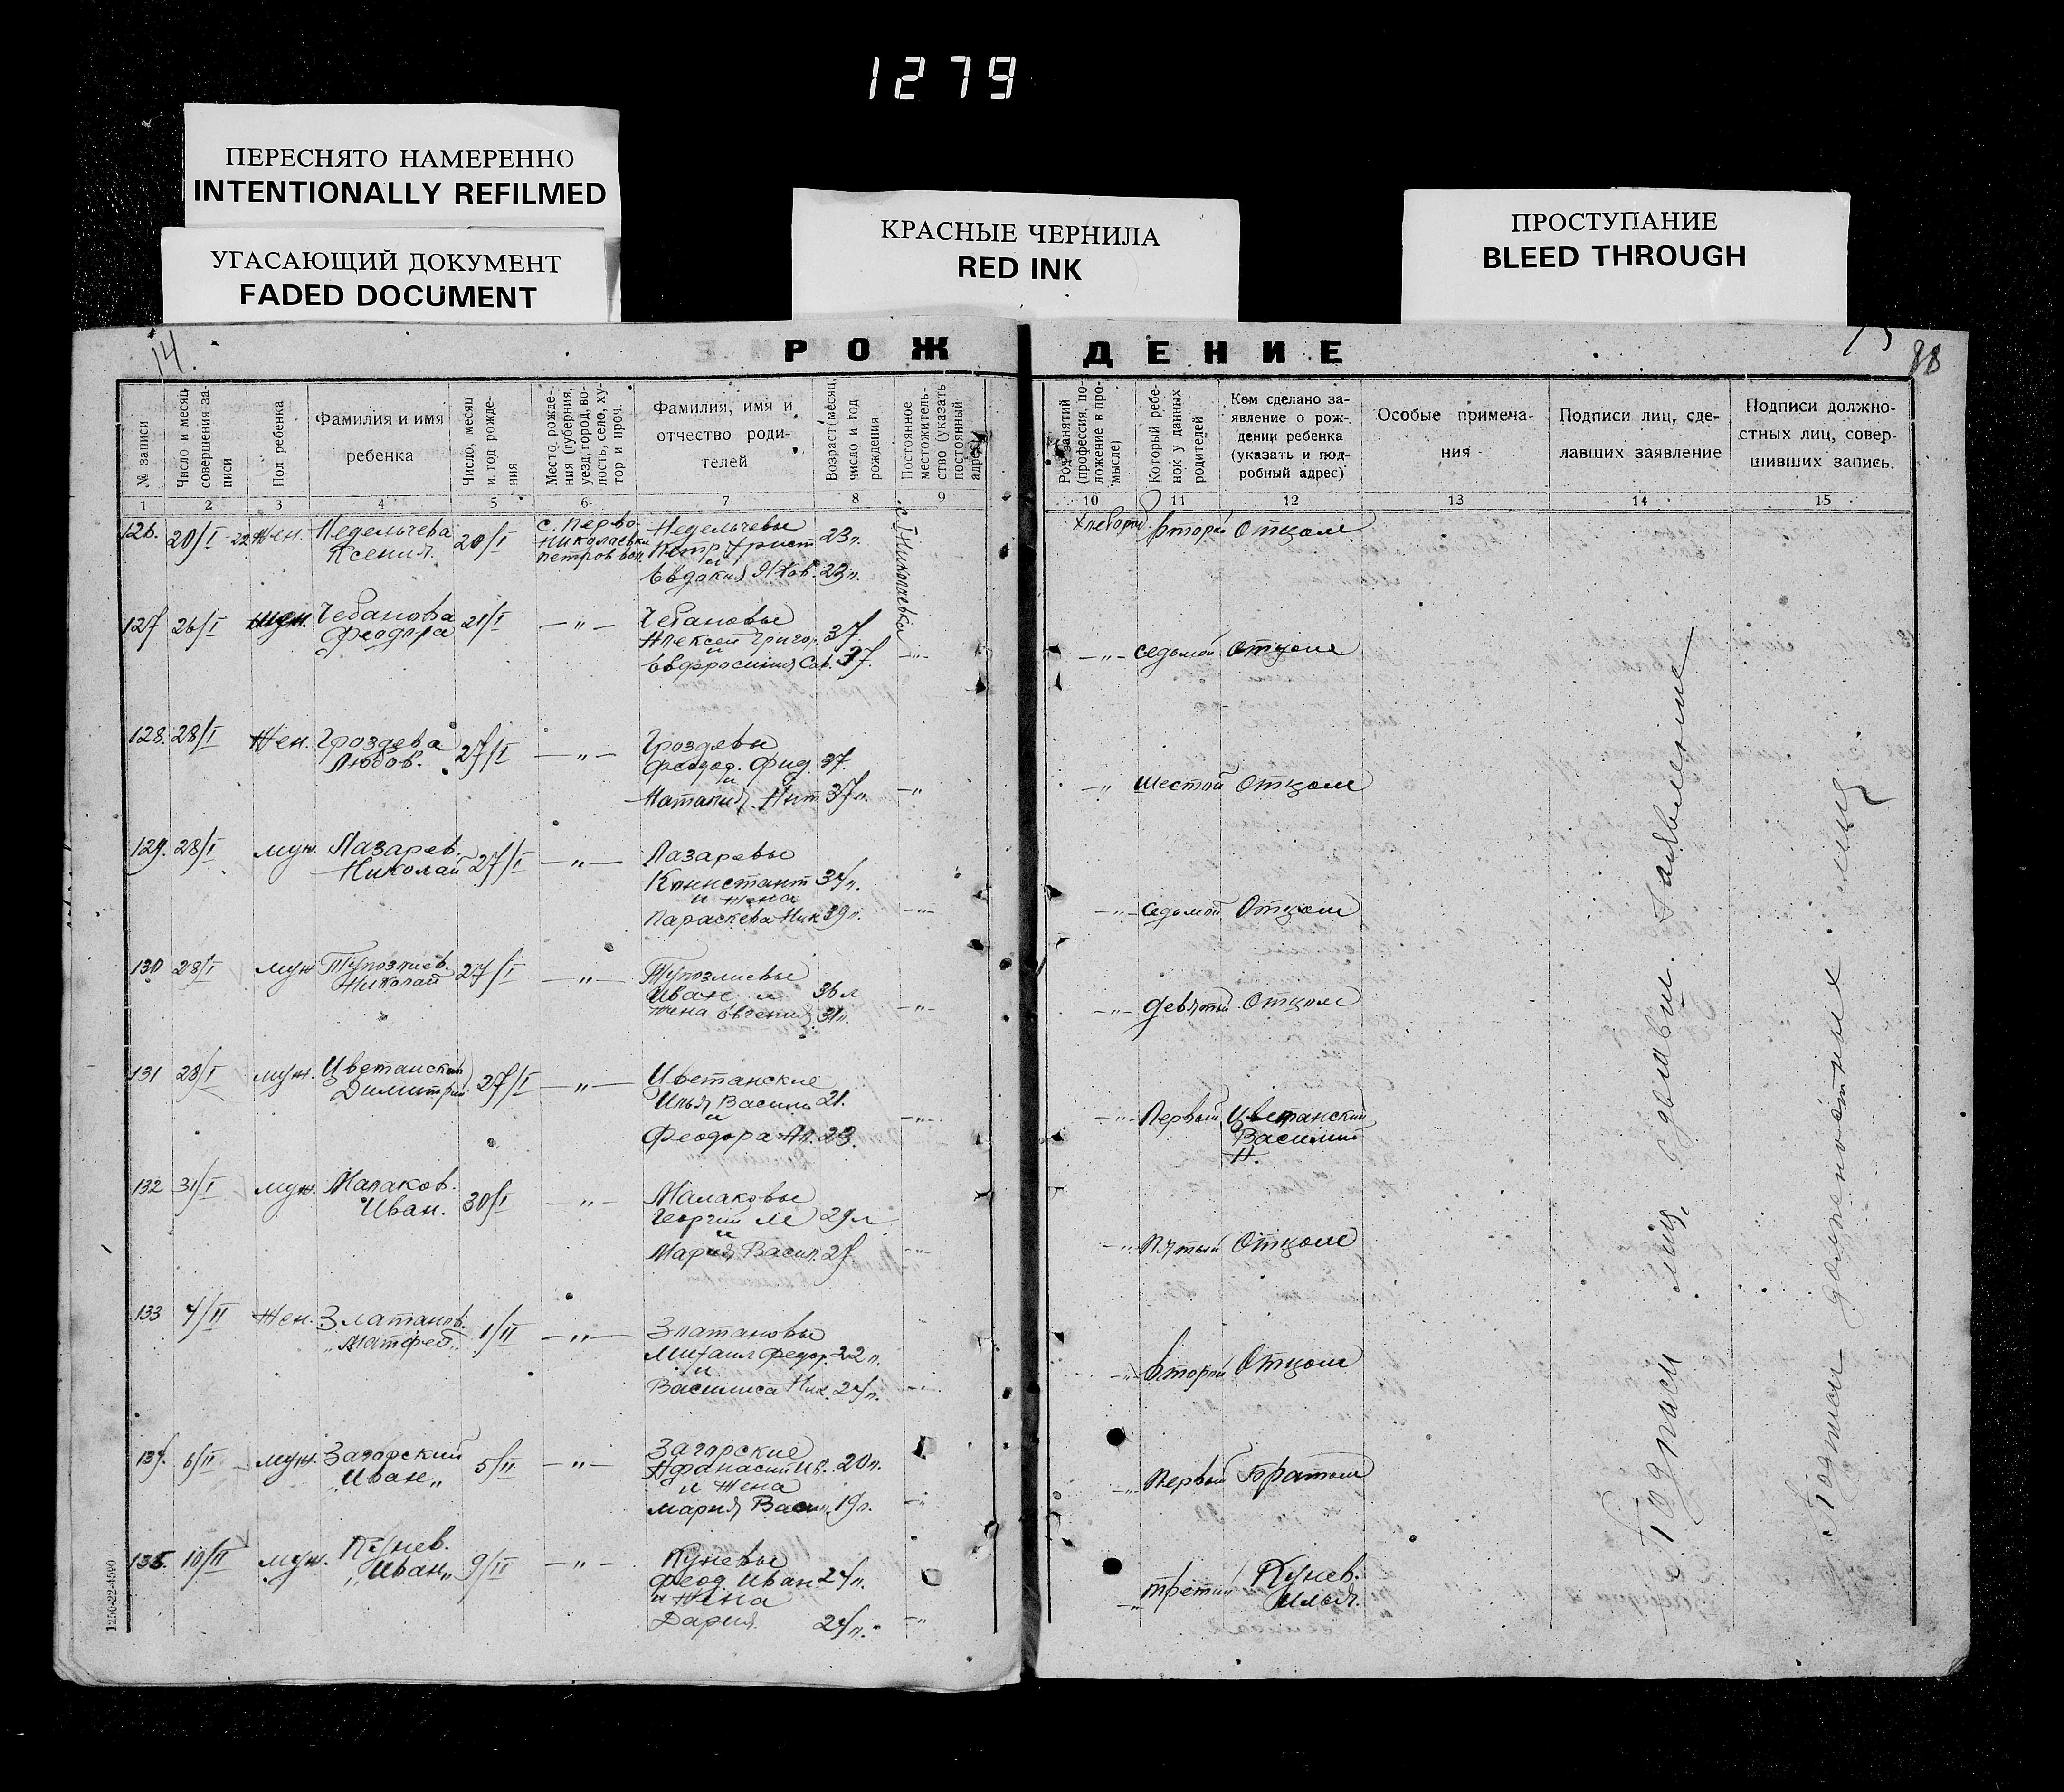 1279
ПЕРЕСНЯТО НАМЕРЕННО
INTENTIONALLY REFILMED
УГАСАЮЩИЙ ДОКУМЕНТ
FADED DOCUMENT
КРАСНЫЕ ЧЕРНИЛА
RED INK
ПРОСТУПАНИЕ
BLEED THROUGH
14.
РОЖДЕНИЕ
88
№ записи
Число и месяц
совершения за-
писи
Пол ребенка
Фамилия и имя
ребенка
Число, месяц
и год рожде-
ния
Место рожде-
ния (губерния,
уезд, город, во-
лость, село, ху-
тор и проч.
Фамилия, имя и
отчество роди-
телей
Возраст (месяц,
число и год
рождения
Постоянное
местожитель-
ство (указать
постоянный
адрес)
Род занятий
(профессия, по-
ложение в про-
мысле)
Который ребе-
нок у данных
родителей
Кем сделано за-
явление о рож-
дении ребенка
(указать и под-
робный адрес)
Особые примеча-
ния
Подписи лиц, сде-
лавших заявление
Подписи должно-
стных лиц, совер-
шивших запись.
1 2 3 4 5 6 7 8 9 10 11 12 13 14 15
126. 20/I -22 Жен. Недельчева
Ксения. 20/I
с. Перво
Николаевки
петров вол.
Недельчевы
Петр Христ 23л.
и
Евдокия Яков. 23л.
с. Николаевка
хлебороб второй Отцом
127 26/I жен. Чебанова
Феодора 21/I — " —
Чебановы
Алексей Григор. 37.
и
Евфросиния Сав. 37. — " —
— " — седьмой Отцом
128. 28/I Жен. Гроздева
Любов. 27/I — " —
Гроздевы
Феодор. Фид. 37.
и
Наталия Ант 37л. — "
— " шестой Отцом
129. 28/I муж. Лазарев.
Николай 27/I — " —
Лазаревы
Констант 34л.
и жена
Параскева Ник 39л. — " —
— " — седьмой Отцом
130 28/I муж
Николай 27/I — " —
Иван и 36л
жена Евгения 31л. — " —
— " — девятый Отцом
131 28/I муж. Цветанский
Димитрий 27/I — " —
Цветанские
Илья Васили 21.
и
Феодора Ап. 23. — " —
— " — Первый Цветанский
Василий
Н.
132 31/I муж. Малаков.
Иван. 30/I — " —
Малаковы
Георгий М 29л
и
Мария Васил. 27 — " —
— " — пятый Отцом
133 4/II Жен. Златанов.
„Матфей„ 1/II — " —
Златановы
Михаил Федор. 22л.
и
Василиса Ник. 24л. — " —
— " — второй Отцом
134. 6/II муж. Загорский
Иван„ 5/II — " —
Загорские
Афанасий Ив. 20л.
и жена
Мария Васил. 19л. — "
— " первый Братом
135. 10/II муж. Кунев.
„Иван„ 9/II — " —
Куневы
Феод. Иван. 24л.
и жена
Дария. 24л. — "
— " третий Кунев.
Илья.
Подписи лиц, сделавш. заявление
Подписи должностных лиц
1250-22-4590